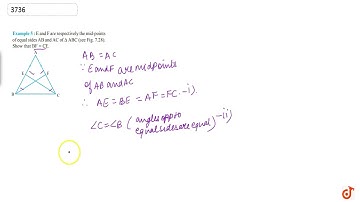 3736
Example 5 : E and F are respectively the mid-points
of equal sides AB and AC of Δ ABC (see Fig. 7.28).
Show that BF = CE.
A
E
F
B
C
AB = AC
∵ E and F are midpoints
of AB and AC
∴ AE = BE = AF = FC -i)
∠C = ∠B ( angles opp to
equal sides are equal ) -(ii)